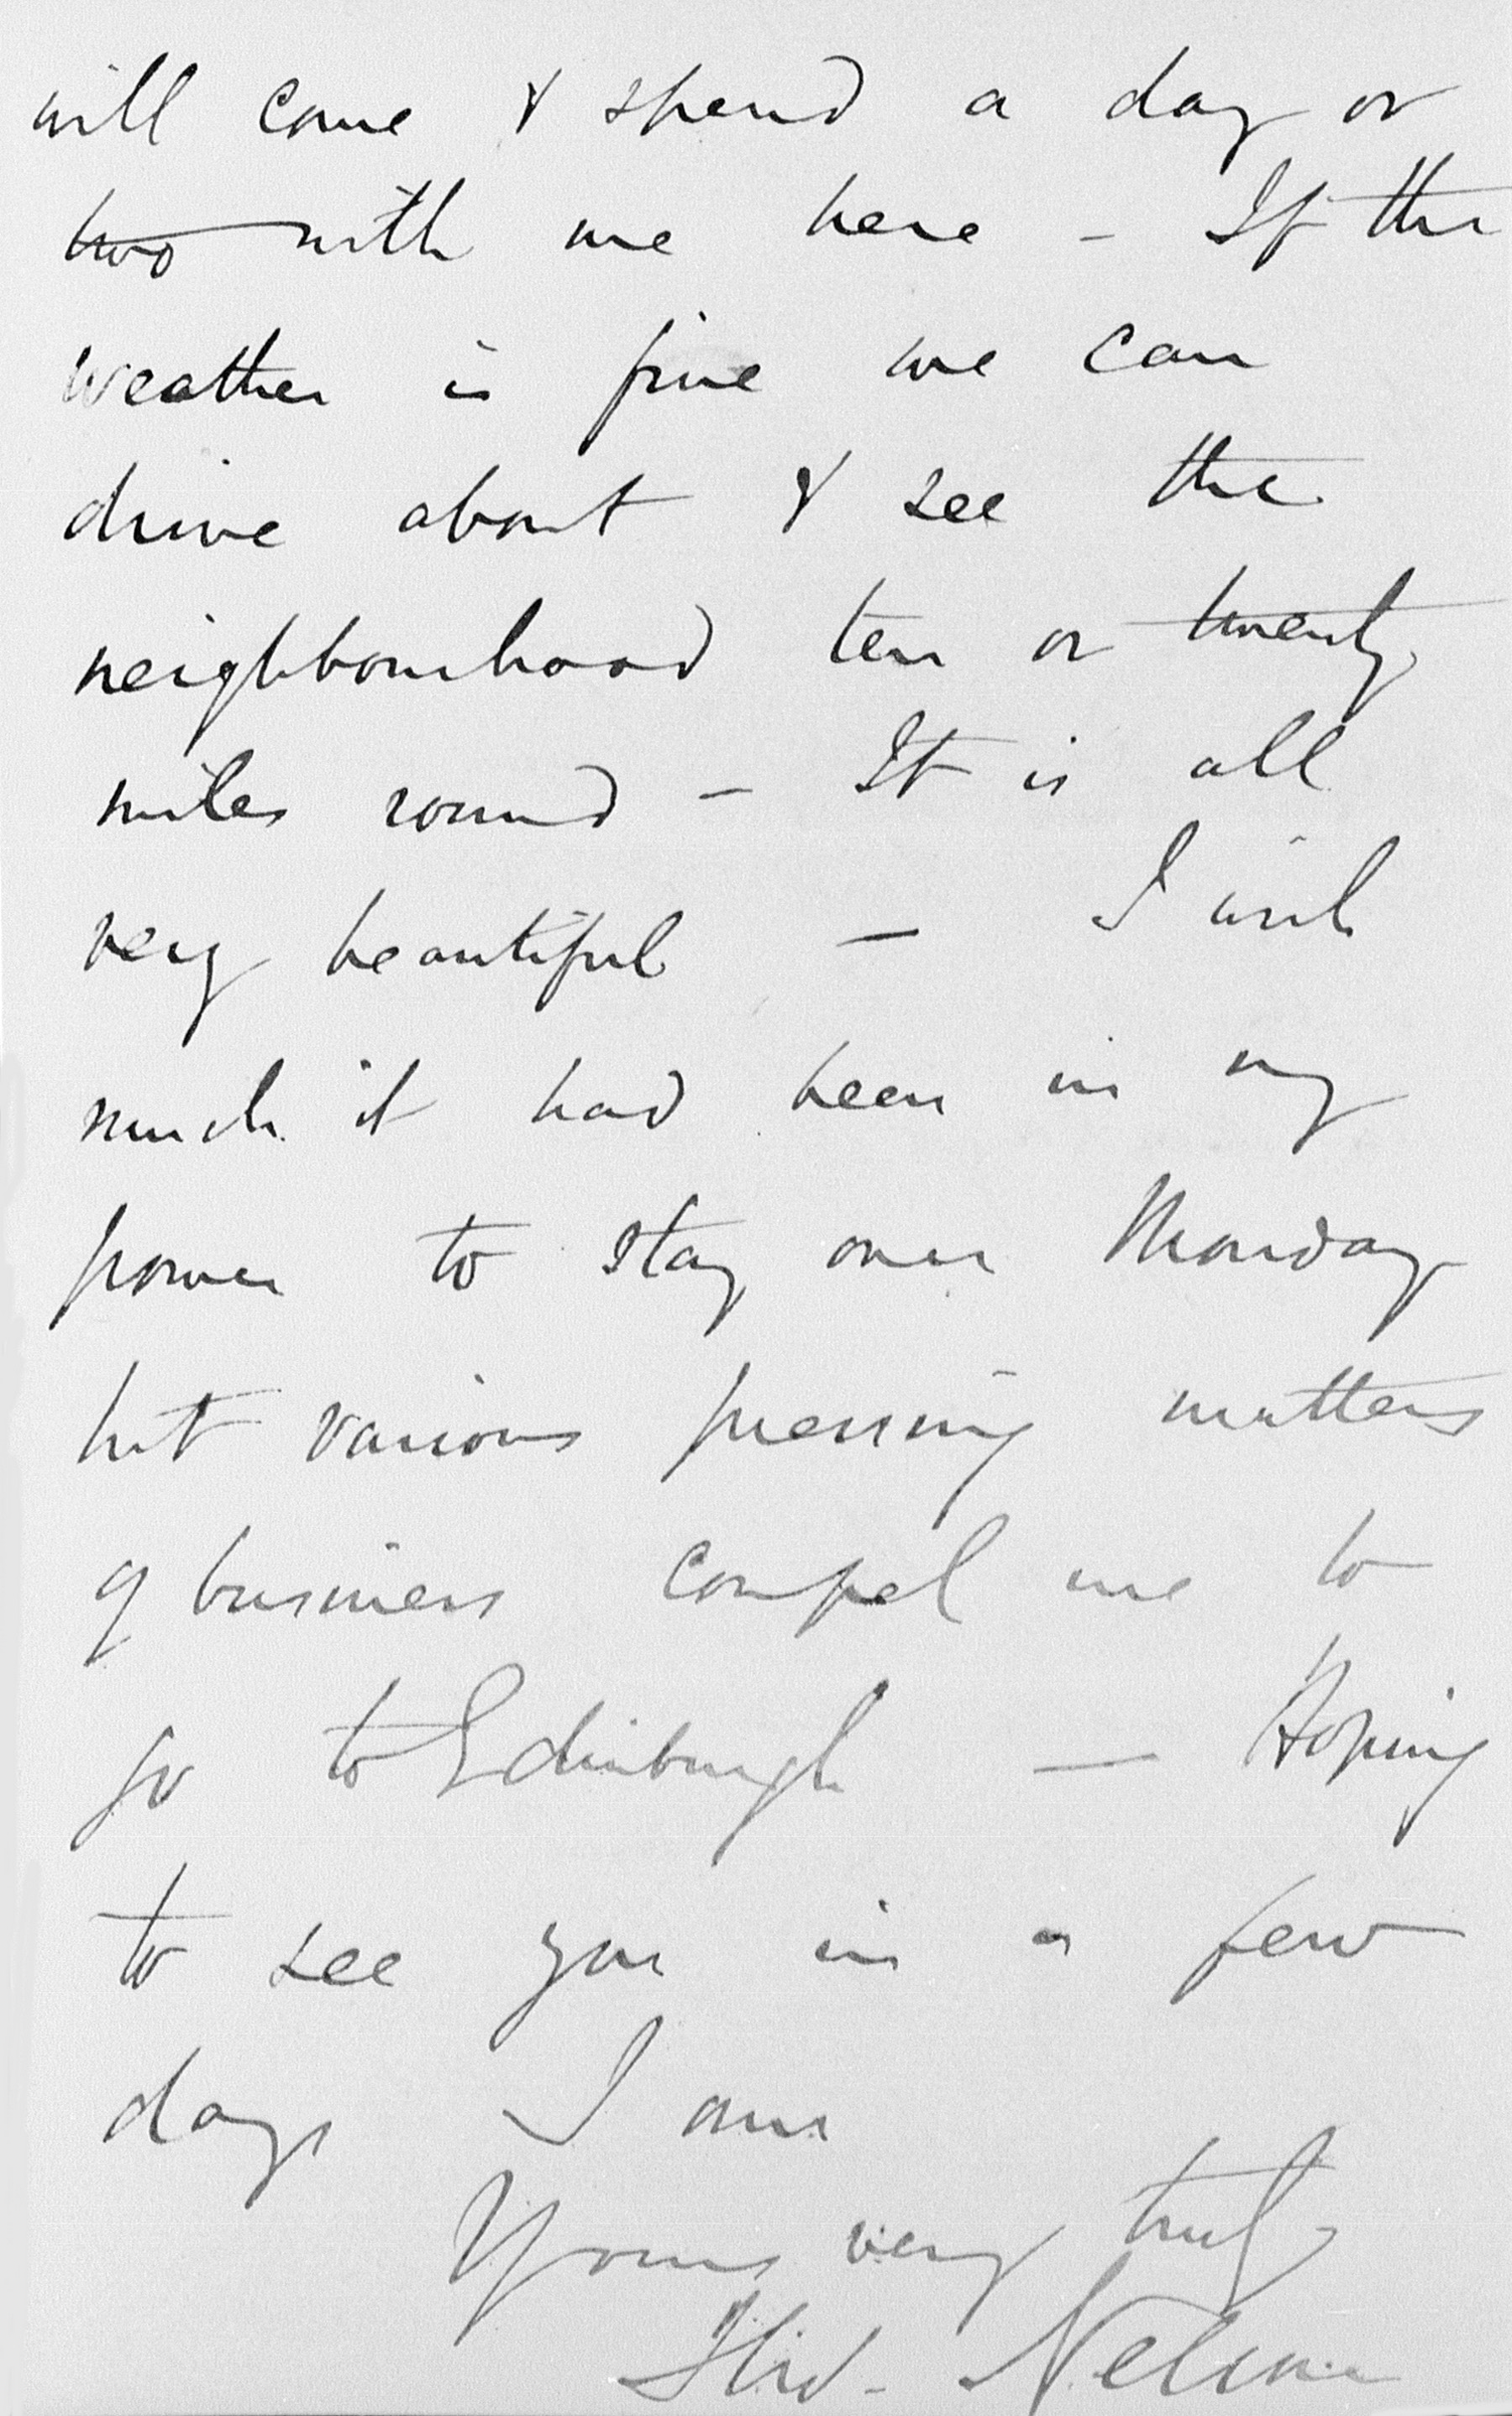 will come & spend a day or
two with me here - If the
weather is fine we can
drive about & see the
neighbourhood ten or twenty
miles round - It is all
very beautiful - I wish
much it had been in my
power to stay over Monday
but various pressing matters
of business compel me to
go to Edinburgh - Hoping
to see you in a few
days I am
Yours very truly
Nelson